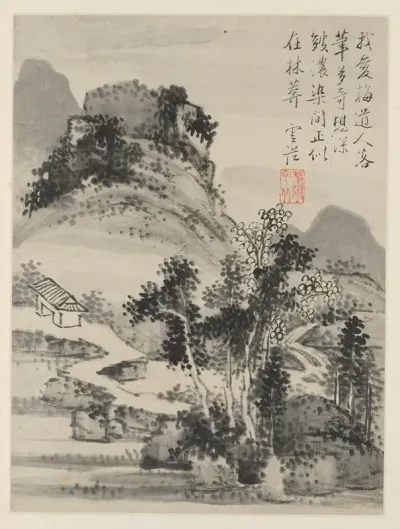 我愛梅道人落
筆多奇想深
皴濃染間正似
在林莽